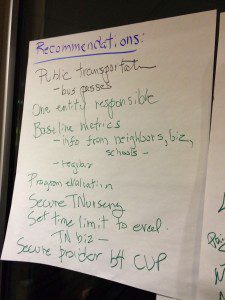 Recommendations:
Public transportation
- bus passes
One entity responsible
Baseline metrics
- info from neighbors, biz,
schools -
-
Program evaluation
Secure TNursing
Set time limit to eval
TN biz -
Secure provider b4 CUP